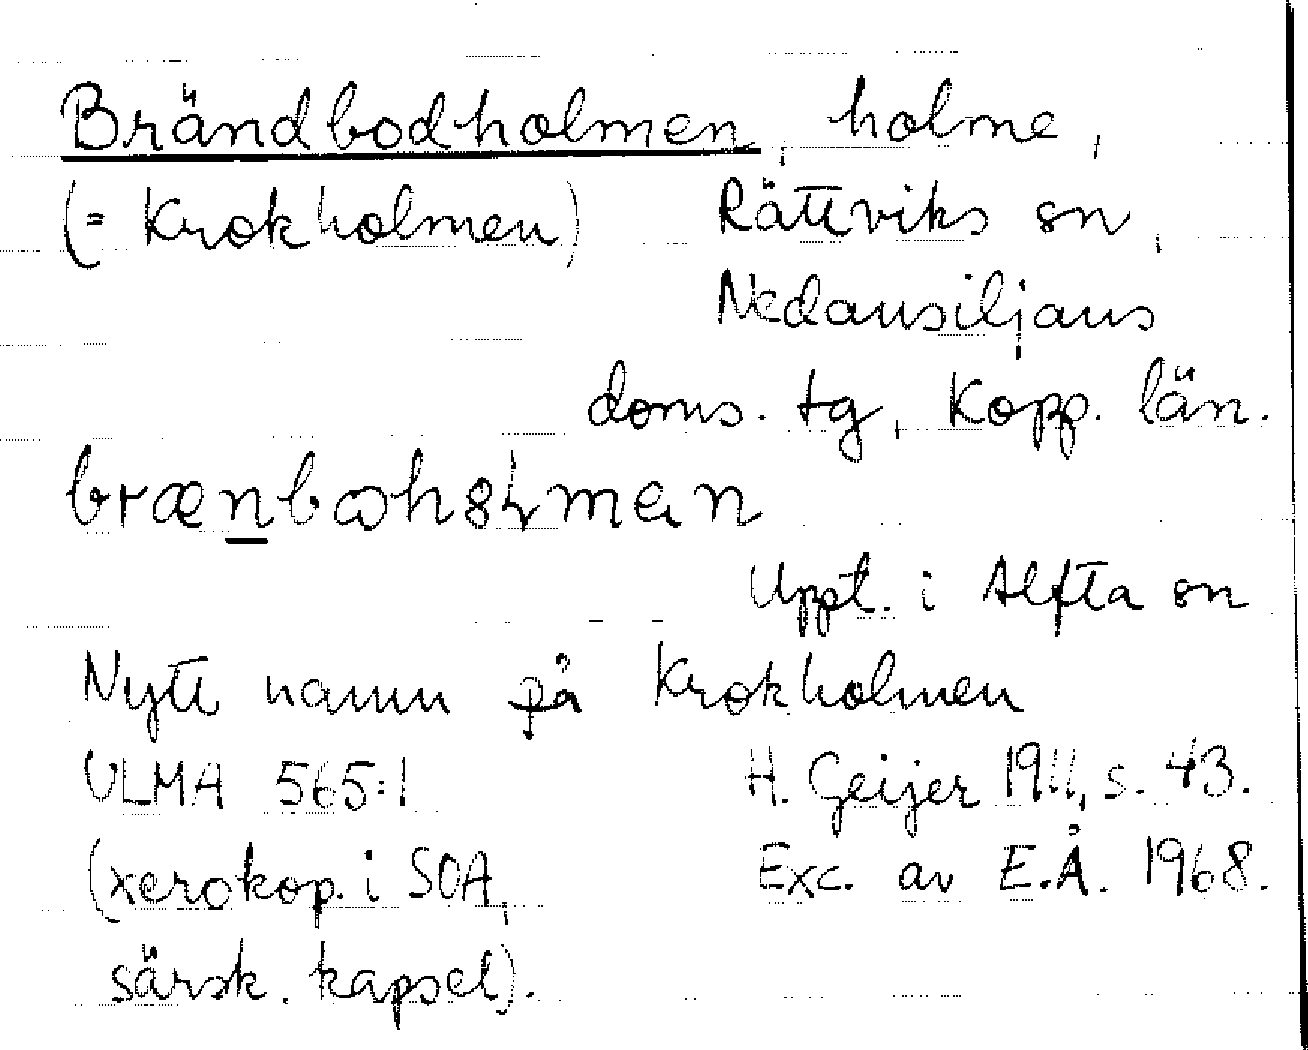 Brändbodholmen, holme,
(= Krokholmen) Rättviks sn,
Nedansiljans
doms. tg, Kopp. län.
Uppt. i Alfta sn
Nytt namn på Krokholmen
ULMA 565:1 H. Geijer 1911, s. 43.
(xerokop. i SOA, Exc. av E.Å. 1968.
särsk. kapsel).